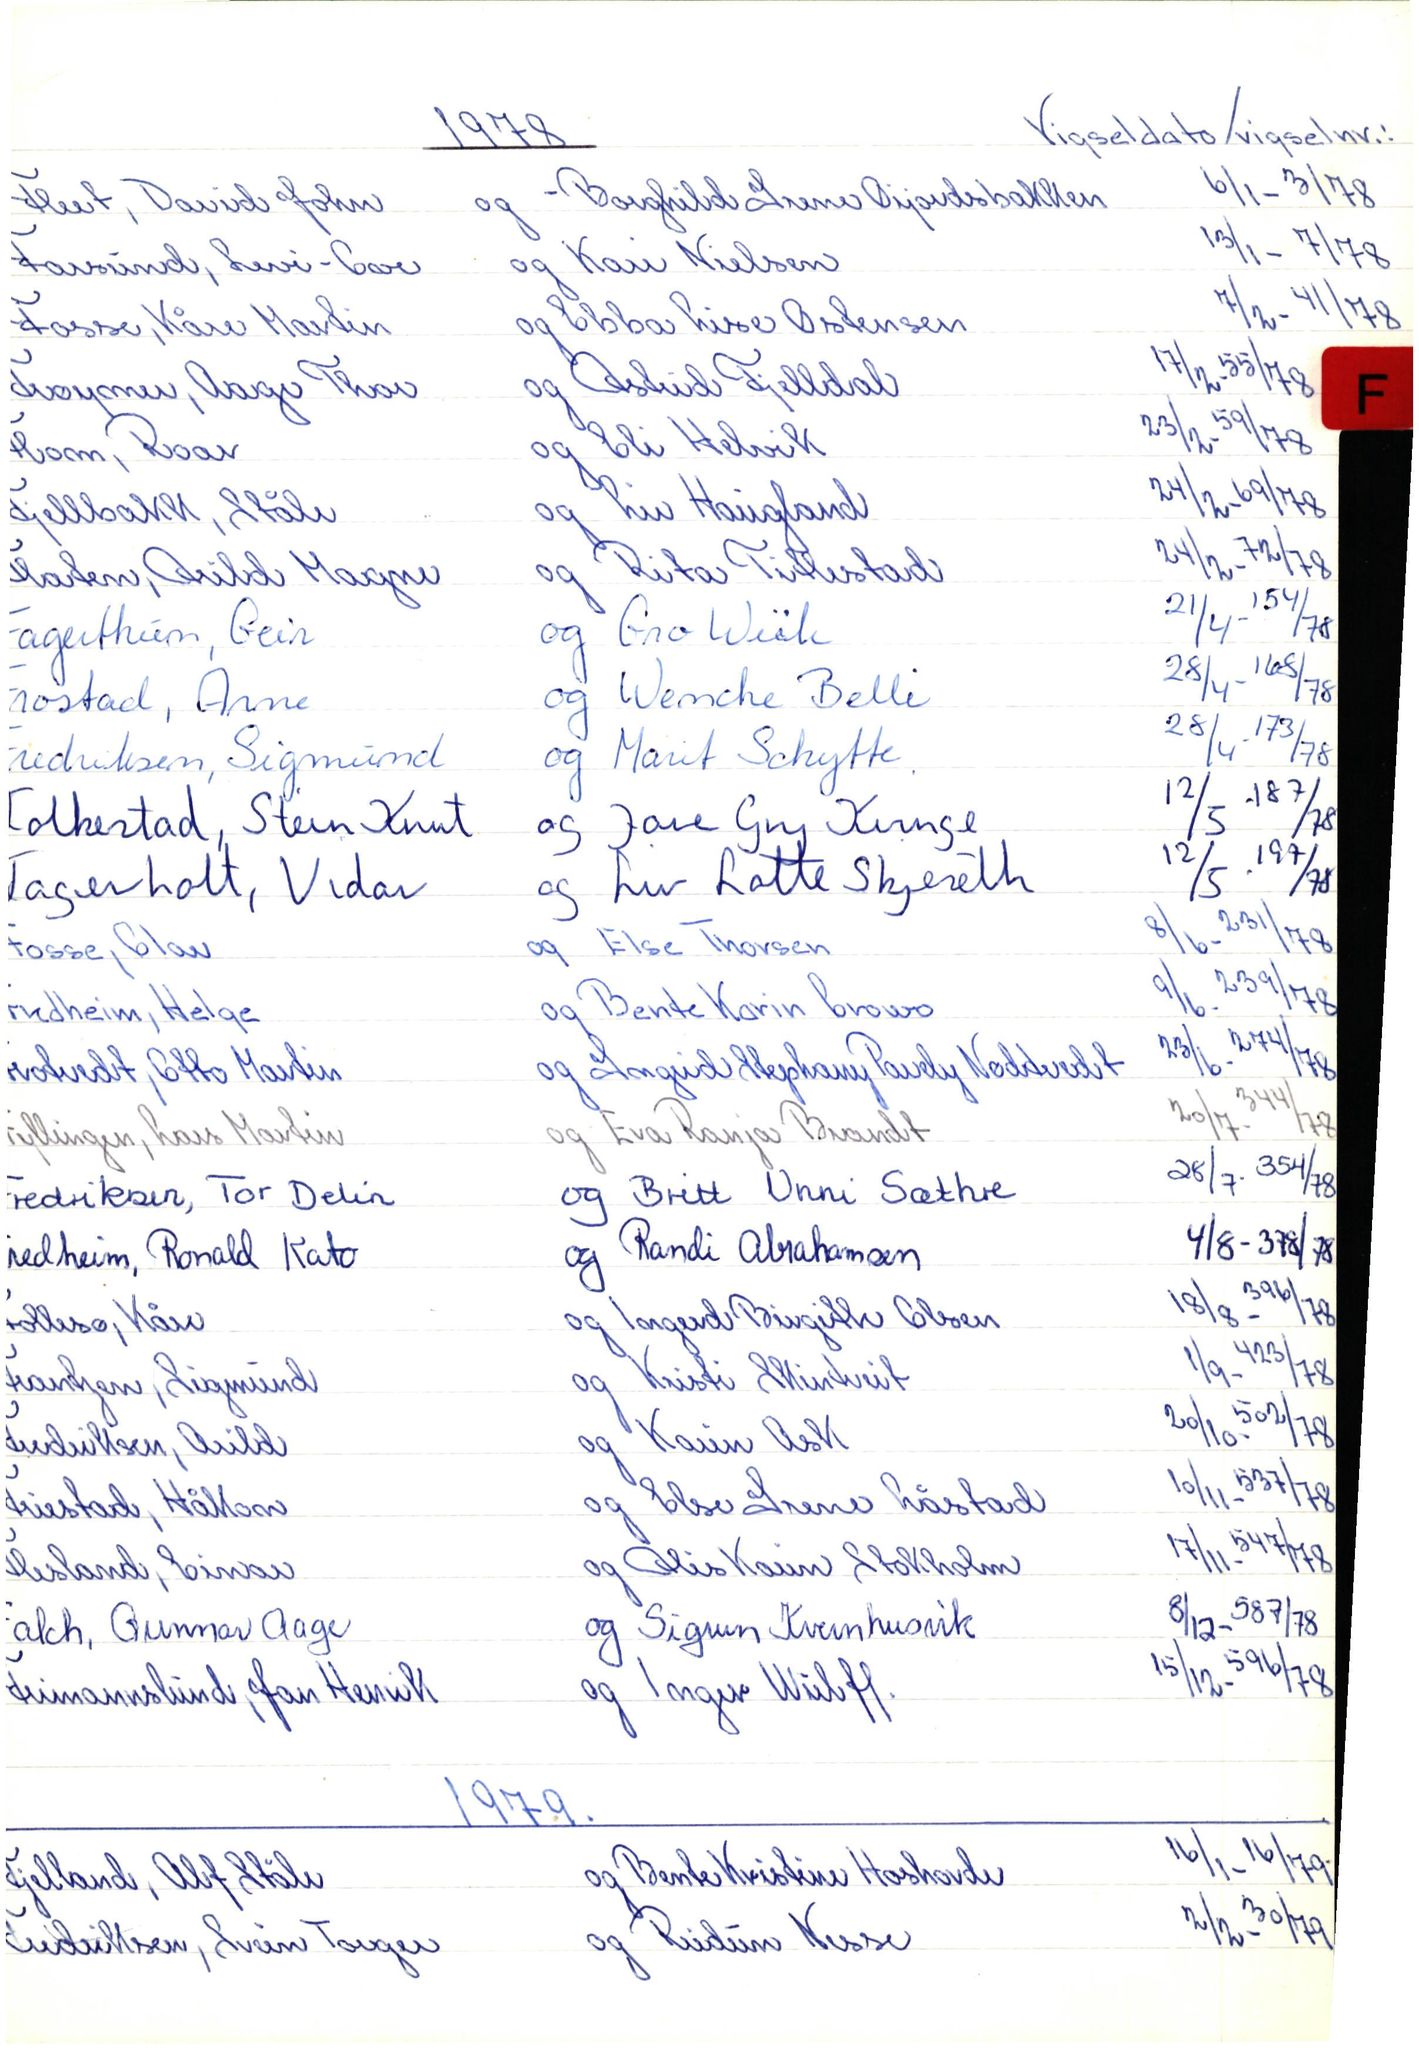 1978 Vigseldato/vigselnr.:
Fleet, David John og - Borghild Irene 6/1 - 3/78
Farsund, Levi-Coar og Kari Nielsen 13/1 - 7/78
Fosse, Kåre Martin og Ebba Lise Østensen 7/2 - 41/78
Frøymer, Aage Thor og Astrid Fjelldal 17/2 - 55/78
Flom, Roar og Eli Helvik 23/2 - 59/78
Fjellbakk, Ståle og Liv Haugland 24/2 - 69/78
Flaten, Arild Magne og Rita Titlestad 24/2 - 72/78
Fagerthun, Geir og Gro Wiik 21/4 - 154/78
Frostad, Arne og Wenche Belli 28/4 - 168/78
Fredriksen, Sigmund og Marit Schytte. 28/4 - 173/78
Folkestad, Stein Knut og Jane Gry Kringe 12/5 - 187/78
Fagerholt, Vidar og Liv Lotte Skjereth 12/5 - 197/78
Fosse, Olav og Else Thorsen 8/6 - 231/78
Fredheim, Helge og Bente Karin Crowo 9/6 - 239/78
Frotvedt, Otto Martin og Ingrid Stephany Pauly Nødtvedt 23/6 - 274/78
Lars Martin og Eva Ranja Brandt 20/7 - 344/78
Fredriksen, Tor Delin og Britt Unni Sæthre 28/7 - 354/78
Fredheim, Ronald Kato og Randi Abrahamsen 4/8 - 378/78
Follesø, Kåre og Ingerd Birgithe Olsen 18/8 - 396/78
Frantzen, Sigmund og Kristi Skintveit 1/9 - 423/78
Fredriksen, Arild og Karin Ask 20/10 - 502/78
Friestad, Håkon og Else Irene Låstad 10/11 - 537/78
Flesland, Einar og Alis Karin Stokholm 17/11 - 547/78
Falch, Gunnar Aage og Sigrun Kvernhusvik 8/12 - 587/78
Freimannslund, Jan Henrik og Inger Wulff. 15/12 - 596/78
1979.
Fjelland, Alf Ståle og Bente Kristine Hoshovde 16/1 - 16/79
Fredriksen, Svein Torger og Reidun Nesse 2/2 - 30/79
F